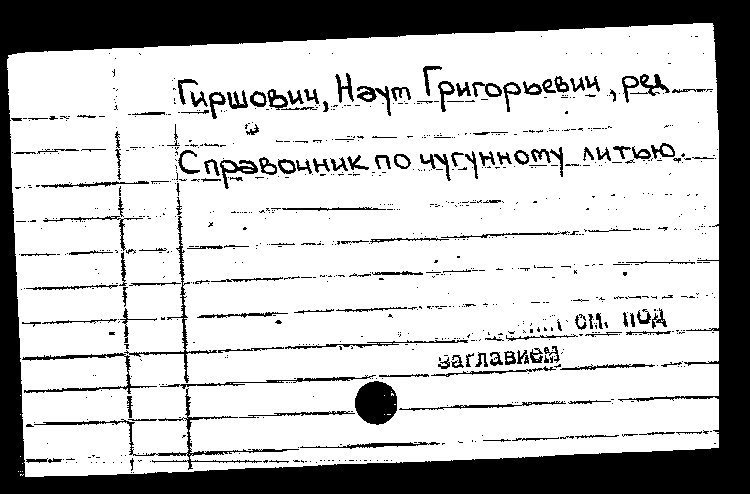 Гиршович, Наут Григорьевич, ред.
Справочник по чугунному литью.
см. под
заглавием